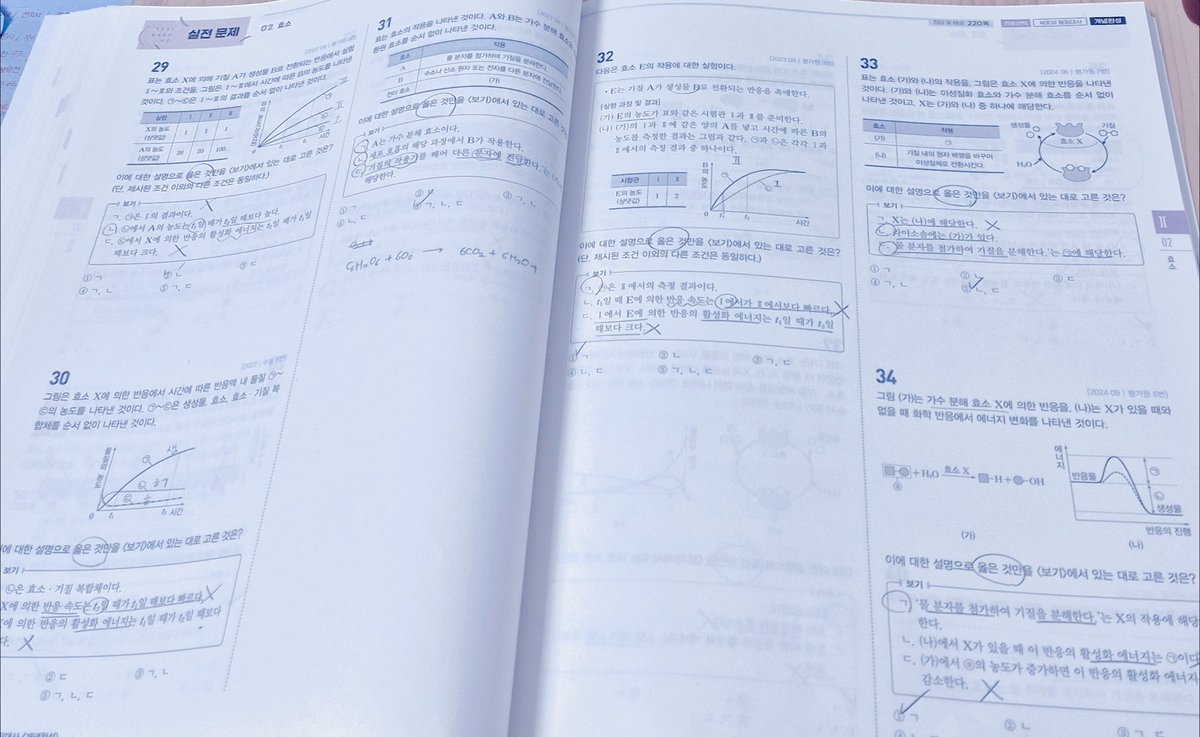 실전 문제 02 효소
29
표는 효소 X에 의해 기질 A가 생성물 B로 전환되는 반응에서 실험
Ⅰ~Ⅲ의 조건을, 그림은 Ⅰ~Ⅲ에서 시간에 따른 B의 농도를 나타낸
것이다. ㉠~㉢은 Ⅰ~Ⅲ의 결과를 순서 없이 나타낸 것이다.
실험 Ⅰ Ⅱ Ⅲ
X의 농도 (상댓값) 1 1 1
A의 농도 (상댓값) 20 50 100
이에 대한 설명으로 옳은 것만을 <보기>에서 있는 대로 고른 것은?
(단, 제시된 조건 이외의 다른 조건은 동일하다.)
보기
ㄱ. ㉠은 Ⅰ의 결과이다.
ㄴ. ㉡에서 A의 농도는 t₁일 때가 t₂일 때보다 높다.
ㄷ. ㉢에서 X에 의한 반응의 활성화 에너지는 t₁일 때가 t₂일
때보다 크다.
① ㄱ ② ㄴ ③ ㄷ
④ ㄱ, ㄴ ⑤ ㄱ, ㄷ
30
[2022 | 수능
그림은 효소 X에 의한 반응에서 시간에 따른 반응액 내 물질 ㉠~
㉢의 농도를 나타낸 것이다. ㉠~㉢은 생성물, 효소, 효소·기질 복
합체를 순서 없이 나타낸 것이다.
물질의 농도
생
0 t₁ t₂ 시간
이에 대한 설명으로 옳은 것만을 <보기>에서 있는 대로 고른 것은?
보기
㉡은 효소·기질 복합체이다.
X에 의한 반응 속도는 t₂일 때가 t₁일 때보다 빠르다.
에 의한 반응의 활성화 에너지는 t₁일 때가 t₂일 때보다
다.
② ㄷ ③ ㄱ, ㄴ
⑤ ㄱ, ㄴ, ㄷ
31
표는 효소의 작용을 나타낸 것이다. A와 B는 가수 분해 효소와
환원 효소를 순서 없이 나타낸 것이다.
효소 작용
A 물 분자를 첨가하여 기질을 분해한다.
B 수소나 산소 원자 또는 전자를 다른 분자에 전달한다.
전이 효소 (가)
이에 대한 설명으로 옳은 것만을 <보기>에서 있는 대로 고른 것은?
보기
ㄱ. A는 가수 분해 효소이다.
ㄴ. 세포 호흡의 해당 과정에서 B가 작용한다.
ㄷ. '기질의 작용기를 떼어 다른 분자에 전달한다.'는 (가)에
해당한다.
① ㄱ ② ㄷ ③ ㄱ, ㄴ
④ ㄴ, ㄷ ⑤ ㄱ, ㄴ, ㄷ
C₆H₁₂O₆ + 6O₂ → 6CO₂ + 6H₂O +
정답 및 해설 220쪽 세포와 물질대사 개념완성
32
[2023 09 | 평가원 3번]
다음은 효소 E의 작용에 대한 실험이다.
• E는 기질 A가 생성물 B로 전환되는 반응을 촉매한다.
[실험 과정 및 결과]
(가) E의 농도가 표와 같은 시험관 Ⅰ과 Ⅱ를 준비한다.
(나) (가)의 Ⅰ과 Ⅱ에 같은 양의 A를 넣고 시간에 따른 B의
농도를 측정한 결과는 그림과 같다. ㉠과 ㉡은 각각 Ⅰ과
Ⅱ에서의 측정 결과 중 하나이다.
시험관 Ⅰ Ⅱ
E의 농도 (상댓값) 1 2
B의 농도
Ⅱ
Ⅰ
0 t₁ t₂ 시간
이에 대한 설명으로 옳은 것만을 <보기>에서 있는 대로 고른 것은?
(단, 제시된 조건 이외의 다른 조건은 동일하다.)
보기
ㄱ. ㉠은 Ⅱ에서의 측정 결과이다.
ㄴ. t₁일 때 E에 의한 반응 속도는 Ⅰ에서가 Ⅱ에서보다 빠르다.
ㄷ. Ⅰ에서 E에 의한 반응의 활성화 에너지는 t₁일 때가 t₂일
때보다 크다.
① ㄱ ② ㄴ ③ ㄱ, ㄷ
④ ㄴ, ㄷ ⑤ ㄱ, ㄴ, ㄷ
33
[2024 06 | 평가원 7번]
표는 효소 (가)와 (나)의 작용을, 그림은 효소 X에 의한 반응을 나타낸
것이다. (가)와 (나)는 이성질화 효소와 가수 분해 효소를 순서 없이
나타낸 것이고, X는 (가)와 (나) 중 하나에 해당한다.
효소 작용
(가) ㉠
(나) 기질 내의 원자 배열을 바꾸어
이성질체로 전환시킨다.
생성물 기질
효소 X
H₂O
이에 대한 설명으로 옳은 것만을 <보기>에서 있는 대로 고른 것은?
보기
ㄱ. X는 (나)에 해당한다.
ㄴ. 라이소솜에는 (가)가 있다.
ㄷ. '물 분자를 첨가하여 기질을 분해한다.'는 ㉠에 해당한다.
① ㄱ ② ㄴ ③ ㄷ
④ ㄱ, ㄴ ⑤ ㄴ, ㄷ
Ⅱ
02
효소
34
[2024 09 | 평가원 6번]
그림 (가)는 가수 분해 효소 X에 의한 반응을, (나)는 X가 있을 때와
없을 때 화학 반응에서 에너지 변화를 나타낸 것이다.
ⓐ +H₂O 효소 X → -H + -OH
(가)
에너지
반응물
㉠
㉡
생성물
반응의 진행
(나)
이에 대한 설명으로 옳은 것만을 <보기>에서 있는 대로 고른 것은?
보기
ㄱ. '물 분자를 첨가하여 기질을 분해한다.'는 X의 작용에 해당
한다.
ㄴ. (나)에서 X가 있을 때 이 반응의 활성화 에너지는 ㉠이다
ㄷ. (가)에서 ⓐ의 농도가 증가하면 이 반응의 활성화 에너지
감소한다.
① ㄱ ② ㄴ ③ ㄱ, ㄷ